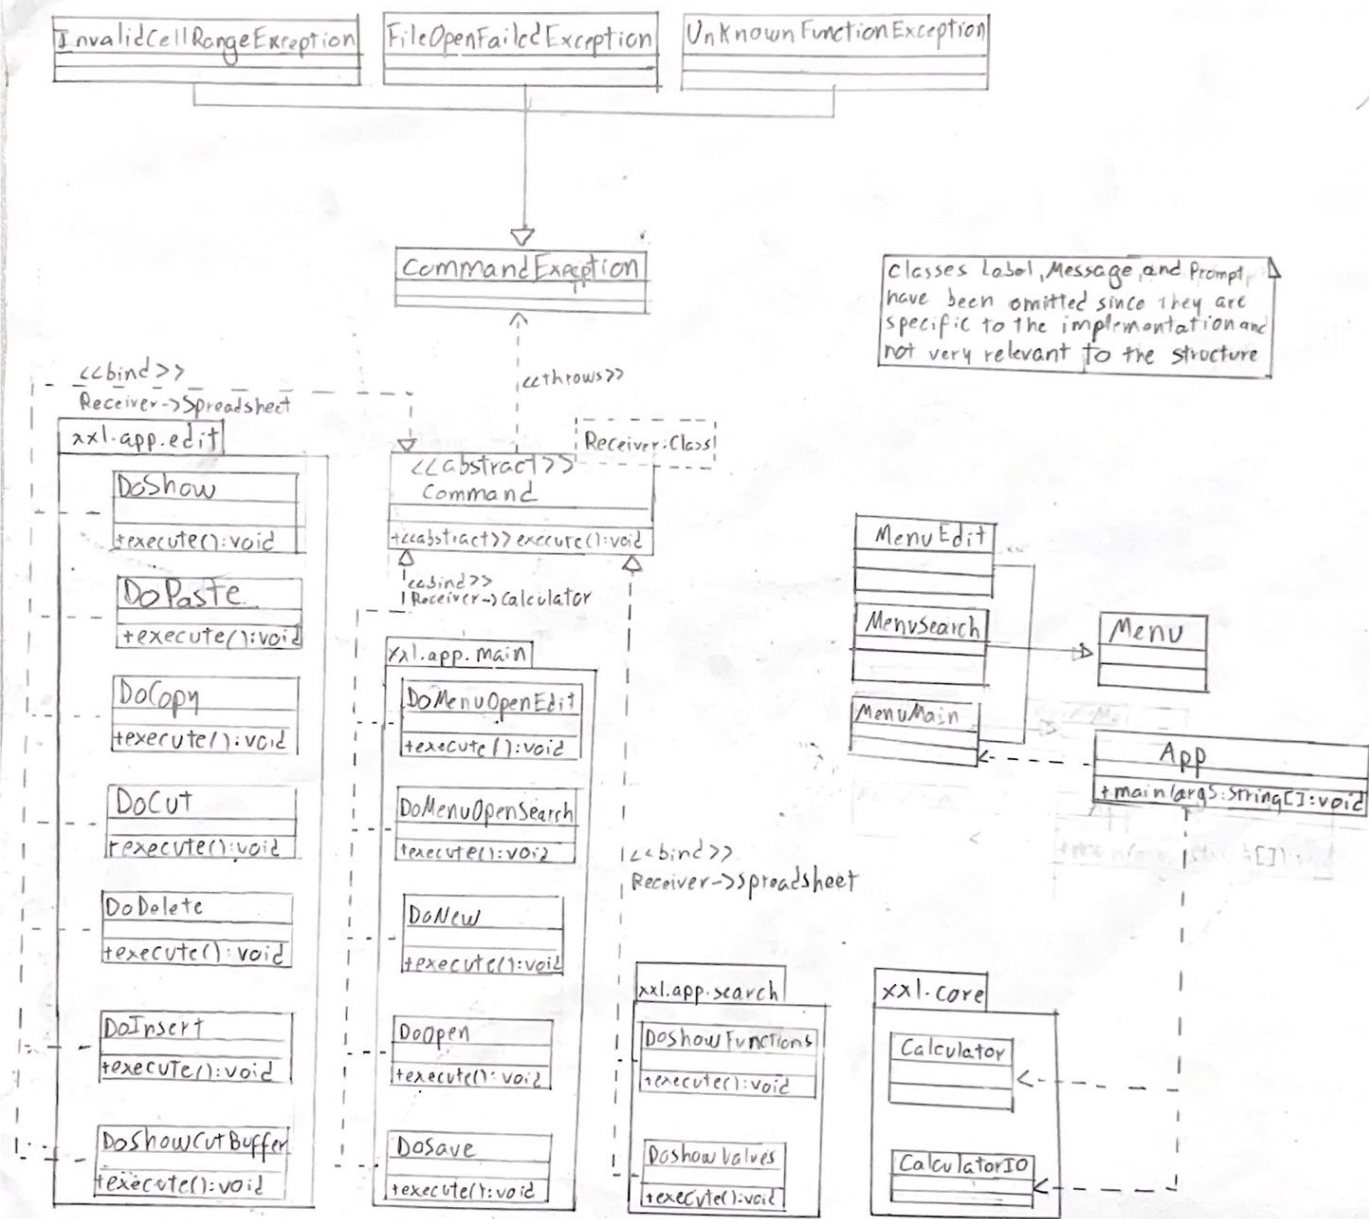 InvalidCellRangeException
FileOpenFailedException
UnknownFunctionException
CommandExeption
Classes Label, Message, and Prompt,
have been omitted since they are
specific to the implementation and
not very relevant to the structure
<<bind>>
Receiver->Spreadsheet
<<throws>>
Receiver:Class
xxl.app.edit
DoShow
+execute():void
DoPaste
+execute():void
DoCopy
+execute():void
DoCut
+execute():void
DoDelete
+execute():void
DoInsert
+execute():void
DoShowCutBuffer
+execute():void
<<abstract>>
Command
+<<abstract>> execure():void
<<bind>>
Receiver->Calculator
xxl.app.main
DoMenuOpenEdit
+execute():void
DoMenuOpenSearch
+execute():void
DoNew
+execute():void
DoOpen
+execute():void
DoSave
+execute():void
<<bind>>
Receiver->Spreadsheet
xxl.app.search
DoShowFunctions
+execute():void
DoShowValues
+execute():void
MenuEdit
MenuSearch
MenuMain
Menu
App
+main(args:String[]:void
xxl.core
Calculator
CalculatorIO